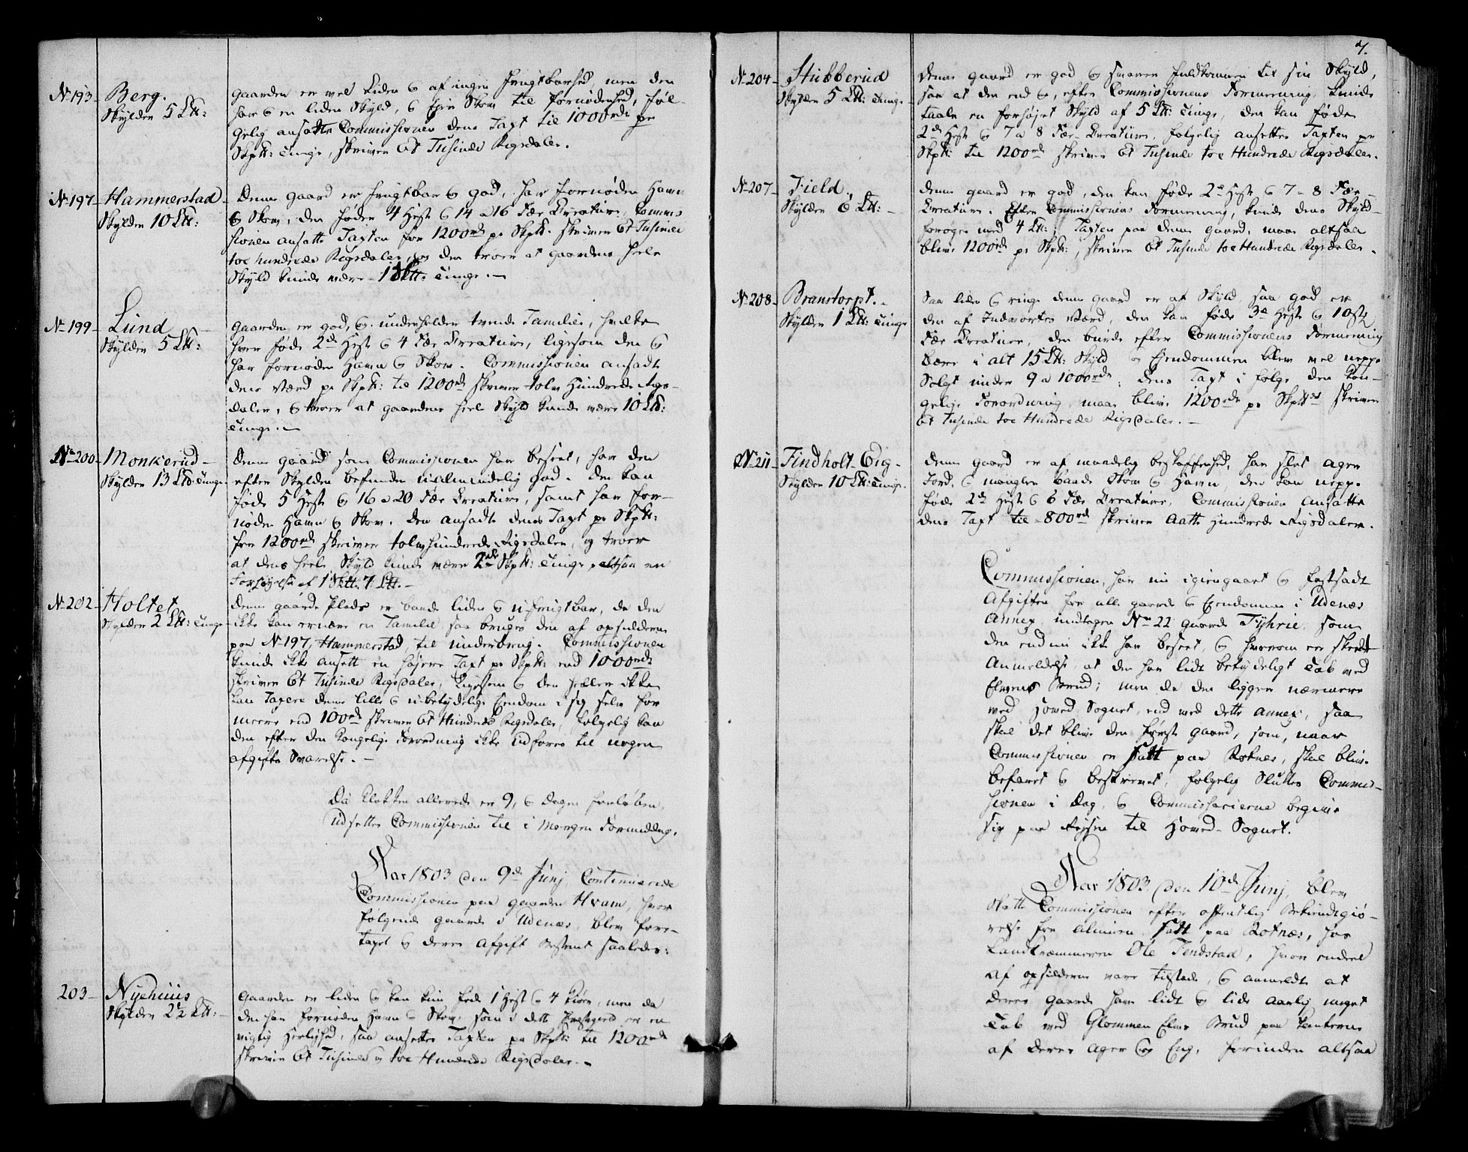 No 193 Berg.
Skylder 5 Lt:
Gaarden er vel liden og af ingen Frugtbarhed men den
har og en liden Skyld, og Eier Skov til Fornødenhed, føl-
gelig ansatte Commissionen dens Taxt til 1000rd pr
Skpt: Tunge, skriver Et Tusinde Rigsdaler.
No 197 Hammerstad
Skylder 10 Lt:
Denne gaard er frugtbar og god, har fornøden Havn
og Skov, den føder 4 Hest og 14 a 16 Fær Creature, Commis
sionen ansatte Taxten for 1200rd pr Skpt. skriver Et Tusinde
toe hundrede Rigsdaler, og den troer at gaardens heele
Skyld kunde være 1 Skt: Tunge.—
No 199 Lund
Skylder 5 Lt:
Gaarden er god, og underholder tvende Familier, hvilke
hver føde 2de Hest og 4 Fær Creature, ligesom den og
har fornøden Havn og Skov. Commissionen ansadt
dens Værd pr Skpt: til 1200rd skriver tolv Hundrede Rigs-
daler, og troer at gaardens heel Skyld kunde være 10 Lt:
Tunge.—
No 200 Monkerud
Skylder 13 Lt Tunge
Denne gaard som Commissionen har beseet, har den
efter Skylden befunden ualmindelig god. Den kan
føde 5 Hest og 16 a 20 Fær Creature, samt har for-
nøden Havn og Skov. Den ansadt denes Taxt pr Skpt:
for 1200rd skriver tolvhundrede Rigsdaler, og troer
at dens heele Skyld kunde være 2de Skpt: Tunge, altsaa en
Forhøyelse af 1 Skt: 7 Lt:.—
No 202 Holtet
Skylder 2 Lt: Tunge
Denne gaards Plads er baade liden og ufrugtbar, da den
ikke kan ernære en Familie saa bruges den af opsidderen
paa No 197 Hammerstad til underbrug. Commissionen
kunde ikke ansætt en høyere Taxt pr Skpt: end 1000rd
skriver Et Tusinde Rigsdaler, ligesom og den heller ikke
kan Taxere denne lille og ubetydelige Eiendom i sig selv for
meere end 100rd skriver Et Hundrede Rigsdaler, følgelig kan
den efter den Kongelige Forordning ikke udføres til nogen
afgifts Svarelse.—
Da Klokken allerede er 9, og Dagen forløben,
udsetter Commissionen til i Morgen Formiddag.
Aar 1803 den 9de Junj, Continuerede
Commissionen paa gaarden Hvam, hvor
følgende gaarde i Udenæs, blev fore-
taget og deres Afgift bestemt saaledes:
203 Nyehuus
Skylder 2½ Lt:
Gaarden er liden og kan kun føde 1 Hest og 4 Kiør, men da
den har fornøden Havn og Skov, som i dette Præstegield er en
vigtig Herlighed, saa ansettes Taxten pr Skpt: til 1200rd
skriver Et Tusinde og toe Hundrede Rigsdaler.—
7.
No 204 Stubberud
Skylder 5 Lt: Tunge
Denne gaard er god og svarer fuldkommen til sin Skyld,
saa at den end og, efter Commissionens Formeening, kunde
taale en forhøjet Skyld af 5 Lt: Tunge, den kan føde
2de Hest og 7 a 8 Fær Creature, følgelig ansettes Taxten pr
Skpt: til 1200rd skriver Et Tusinde toe Hundrede Rigsdaler.
No 207 Field
Skylder 6 Lt:
Denne gaard er god, den kan føde 2de Hest og 7-8 Fær
Creature. Efter Commissionens Formeening, kunde dens Skyld
forøges med 4 Lt:; Taxten paa denne gaard, maae altsaa
blive 1200rd pr Skpt:, skriver Et Tusinde toe Hundrede Rigsdaler.
No 208 Branstorpt.
Skylder 1 Lt: Tunge
Saa liden og ringe denne gaard er af Skyld saa god er
den af Indvortes Værd, den kan føde 3de Hest og 10 stk
Fær Creature, den burde efter Commissionens Formeening
være i alt 15 Lt: Skyld og Eiendommen blev vel neppe
Solgt under 9 a 1000rd; dens Taxt i følge den Kon-
gelige Forordning maae blive 1200rd pr Skpd skriver
Et Tusinde toe Hundrede Rigsdaler.—
No 211 Findholt Eig
Skylder 10 Lt: Tunge
Denne gaard er af maadelig beskaffenhed, har slet ager
Jord, og mangler baade Skov og Havn, den kan neppe
føde 2de Hest og 6 Fær Creature. Commissionen ansatte
dens Taxt til 800rd skriver Aatte Hundrede Rigsdaler.
Commissionen, har nu igiengaaet og fastsadt
Afgiften for alle gaarde og Eiendomme i Udenæs
Annex, undtagen No 22 gaarde Fyhrie, som
den endnu ikke har beseet, og hvorom er skeedt
Anmeldelse at den har lidt betydeligt Tab ved
Elvens Brud; men da den ligger nærmere
ved Hoved Sognet, end ved dette Annex, saa
skal det blive den første gaard, som, naar
Commissionen er sadt paa Rotnes, skal blive
befaret og beskrevet, følgelig Slutter Commis-
sionen i Dag, og Commissairerne begive
sig paa Reysen til Hoved-Sognet.
Aar 1803 den 10de Junj, blev
Commissionen efter offentlig Bekiendtgiø-
relse for Almuen satt paa Rotnæs, hos
Landkræmmeren Ole Tendstad, hvor endeel
af opsidderne vare tilstæde, og anmeldt at
deres gaarde have lidt og lide Aarlig meget
Tab ved Glommen Elvs Brud paa Kanterne
af deres Ager og Eng, forinden altsaa